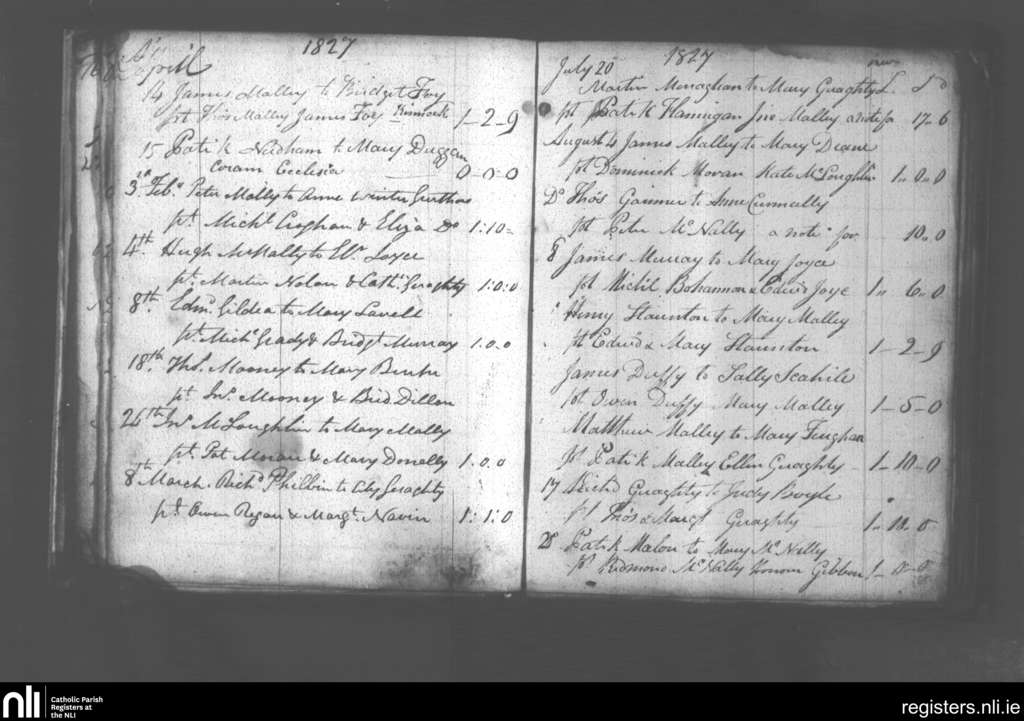 1827
Aprill
14 James Malley to Bridget Foy
pt Thos Malley James Foy Kinsmok 1-2-9
15 Patik Nedham to Mary Duggan
Coram Ecclesia 0-0-0
3d Feby Peter Mally to Anne Winter
pt. Michl Croghan & Eliza Do 1:10=
4th. Hugh McNally to Joyce
pt. Martin Nolan & Cath: Geraghty 1:0:0
8th. Edmd Gildea to Mary Lavell
pt. Michl Grady & Bridgt Murray 1.0.0
18th. Thos. Mooney to Mary Burke
pt. Jno. Mooney & Brid. Dillon
24th Jno McLoughlin to Mary Mally
pt. Pat Moran & Mary Donelly 1.0.0
8th March. Richd Philbin to Geraghty
pt. Owen Regan & Margt. Navin 1:1:0
1827
July 20
Martin Monaghan to Mary Guaghty
pt Patik Flannigan Jno Malley a note for 17-6
August 4 James Malley to Mary Deane
pt Dominick Moran Kate McLoughlin 1.0.0
Do Thos Gannon to Anne Cunnally
pt Peter McNally a note for 10.0
8 James Murray to Mary Joyce
pt Michl Bohannon & Edwd Joye 1.. 6-0
Henry Staunton to Mary Malley
pt Edwd & Mary Staunton 1-2-9
James Duffy to Sally Scahile
pt Owen Duffy Mary Malley 1-5-0
Matthew Malley to Mary Finghan
pt Patik Malley Ellen Guaghty 1-10-0
17 Richd Guaghty to Judy Boyle
pt Thos & Margt Guaghty 1..10..0
28 Patik Malon to Mary McNally
pt Redmond McNally Honour Gibbon 1-0-0
nli
Catholic Parish
Registers at
the NLI
registers.nli.ie